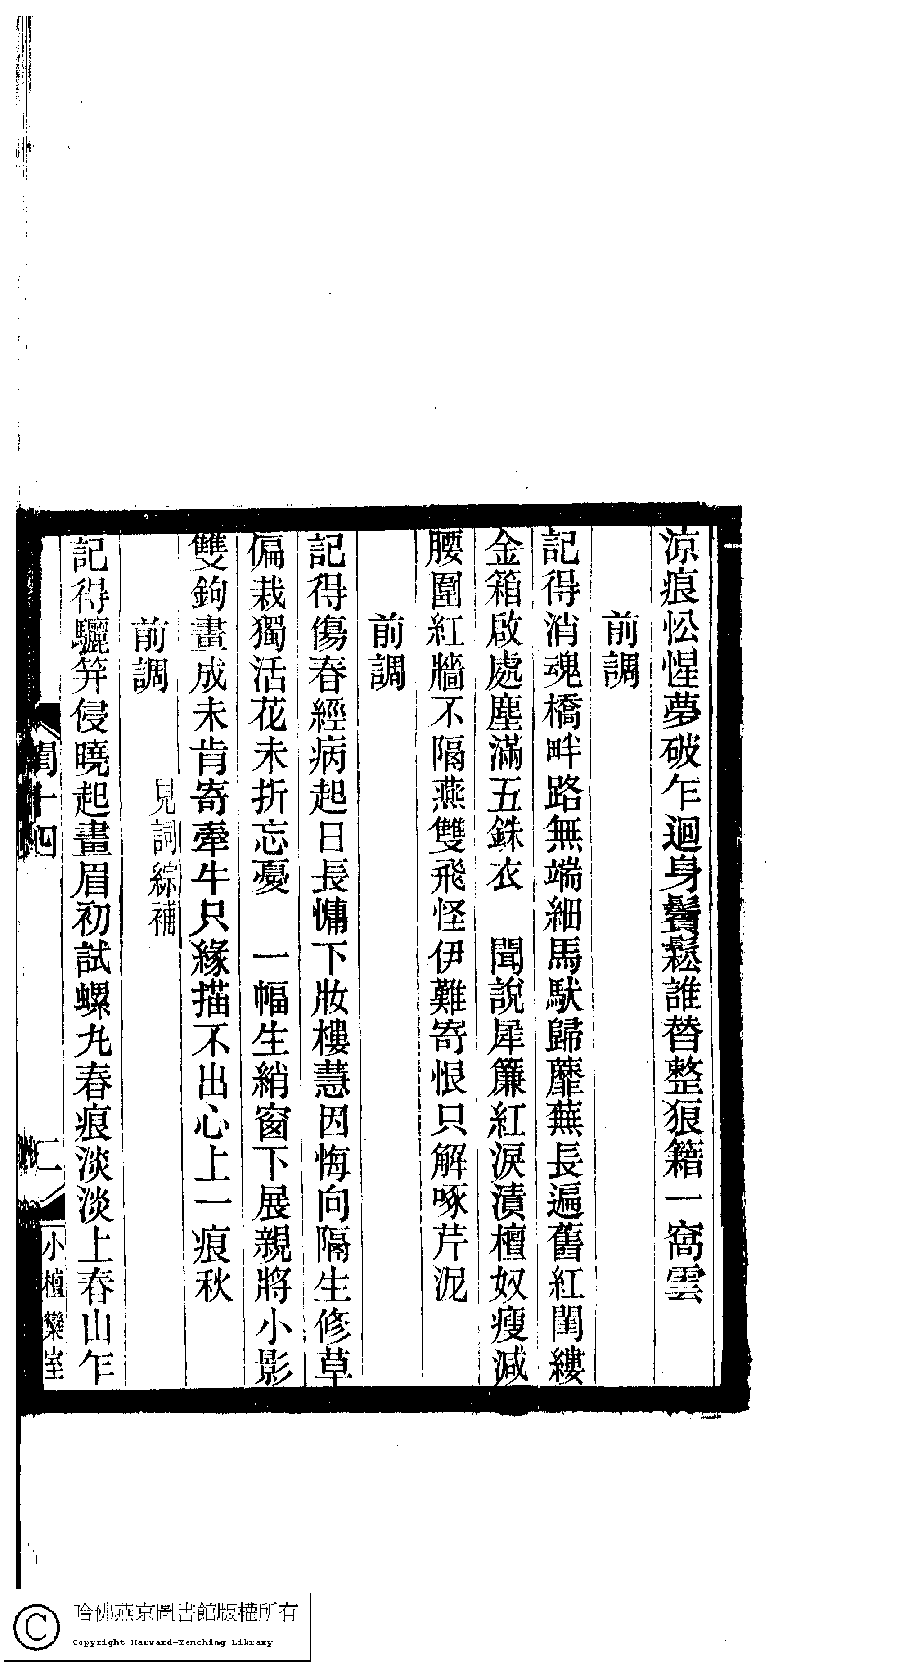 涼痕忪惺夢破乍迴身鬢鬆誰替整狼籍一窩雲
前調
記得消魂橋畔路無端細馬馱歸蘼蕪長遍舊紅閨縷
金箱啟處塵滿五銖衣　聞說犀簾紅淚漬檀奴瘦減
腰圍紅牆不隔燕雙飛怪伊難寄恨只解啄芹泥
前調
記得傷春經病起日長慵下妝樓慧因悔向隔生修草
偏栽獨活花未折忘憂　一幅生綃窗下展親將小影
雙鉤畫成未肯寄牽牛只緣描不出心上一痕秋
前調　見詞綜補
記得驪笄侵曉起畫眉初試螺丸春痕淡淡上春山乍
閏十四
二
小檀欒室
哈佛燕京圖書館版權所有
Copyright Harvard-Yenching Library